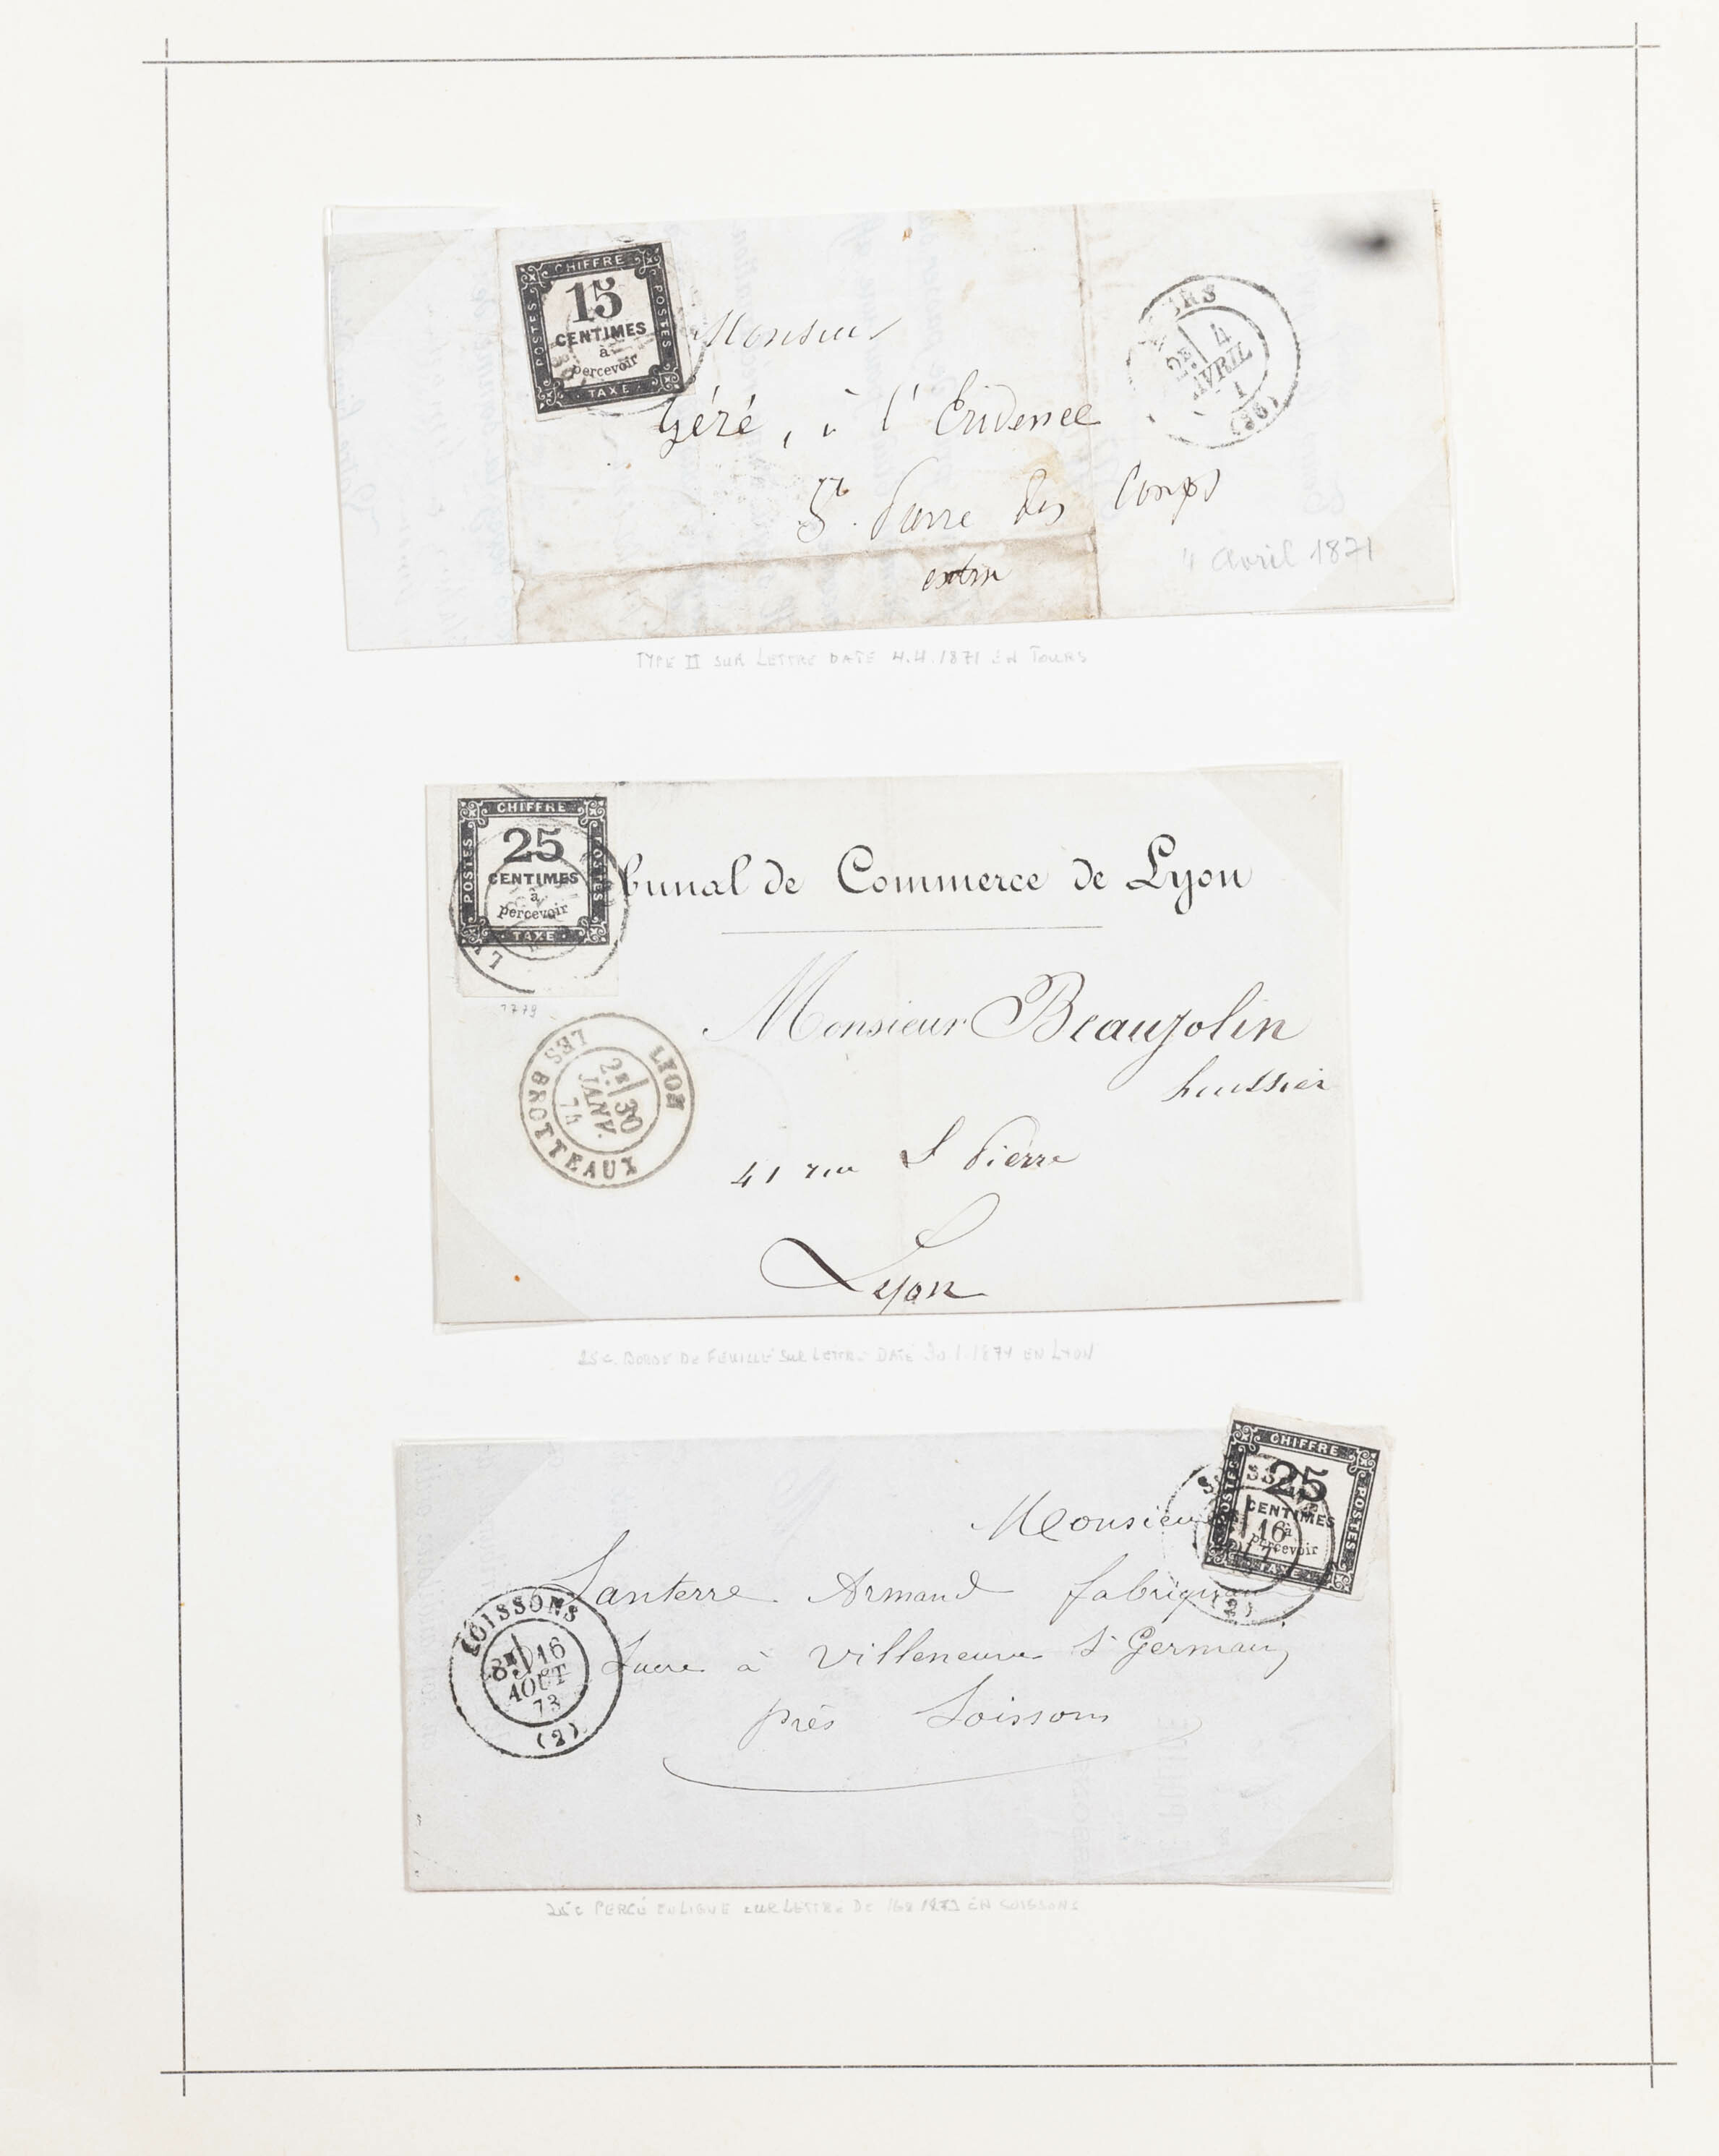 CHIFFRE
POSTES
15
CENTIMES
à
percevoir
POSTES
TAXE
Monsieur
Géré, à l'
St. Pierre des Corps
4
AVRIL
(36)
4 avril 1871
TYPE II SUR LETTRE DATE 4.4.1871 EN TOURS
CHIFFRE
POSTES
25
CENTIMES
à
percevoir
POSTES
TAXE
bunal de Commerce de Lyon
Monsieur Beaujolin
huissier
41 rue St Pierre
Lyon
LYON
LES BROTTEAUX
2E 30
JANV.
74
25c. BORD DE FEUILLE SUR LETTRE DATÉ 30.1.1874 EN LYON
CHIFFRE
POSTES
25
CENTIMES
à
percevoir
POSTES
TAXE
16
(2)
Monsieur
Lanterre Armand
Sucre à Villeneuve St Germain
près Soissons
SOISSONS
16
AOUT
73
(2)
25c PERCÉ EN LIGNE SUR LETTRE DE 16 8 1873 EN SOISSONS